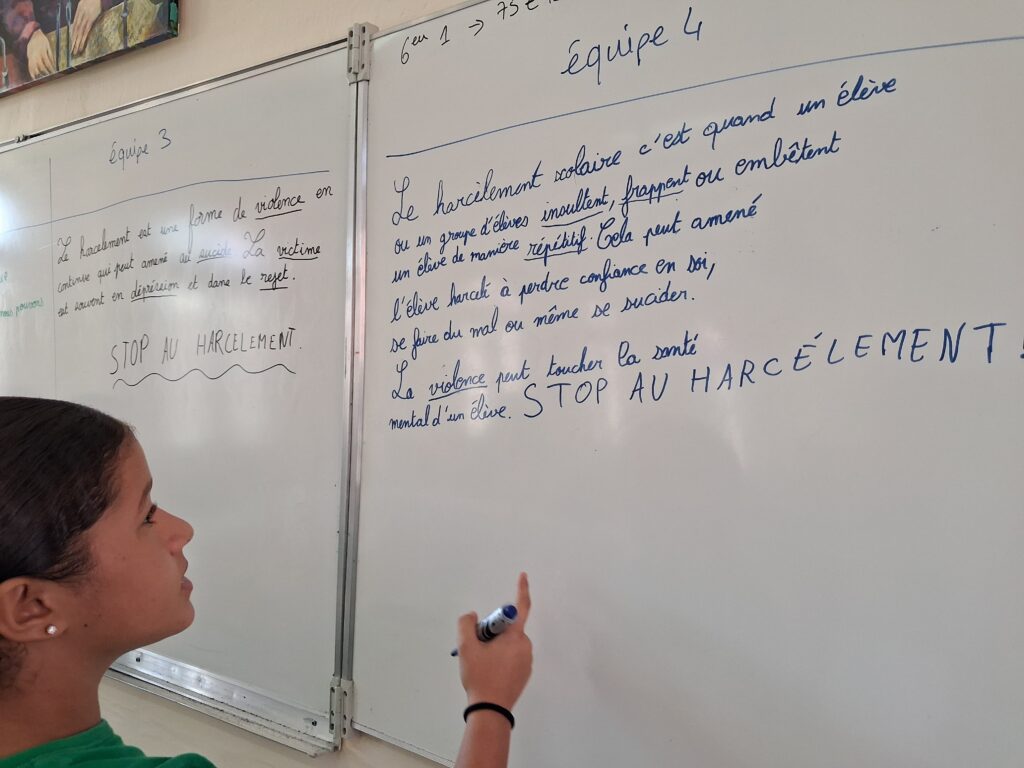 équipe 3
Le harcelement est une forme de violence en
continue qui peut amené au sucide La victime
est souvent en dépression et dans le rejet.
STOP AU HARCELEMENT.
nous pouvons
6eu 1 → 75
équipe 4
Le harcèlement scolaire c'est quand un élève
ou un groupe d'élèves insultent, frappent ou embêtent
un élève de manière répétitif. Cela peut amené
l'élève harcelé à perdre confiance en soi,
se faire du mal ou même se sucider.
La violence peut toucher la santé
mental d'un élève. STOP AU HARCÉLEMENT!